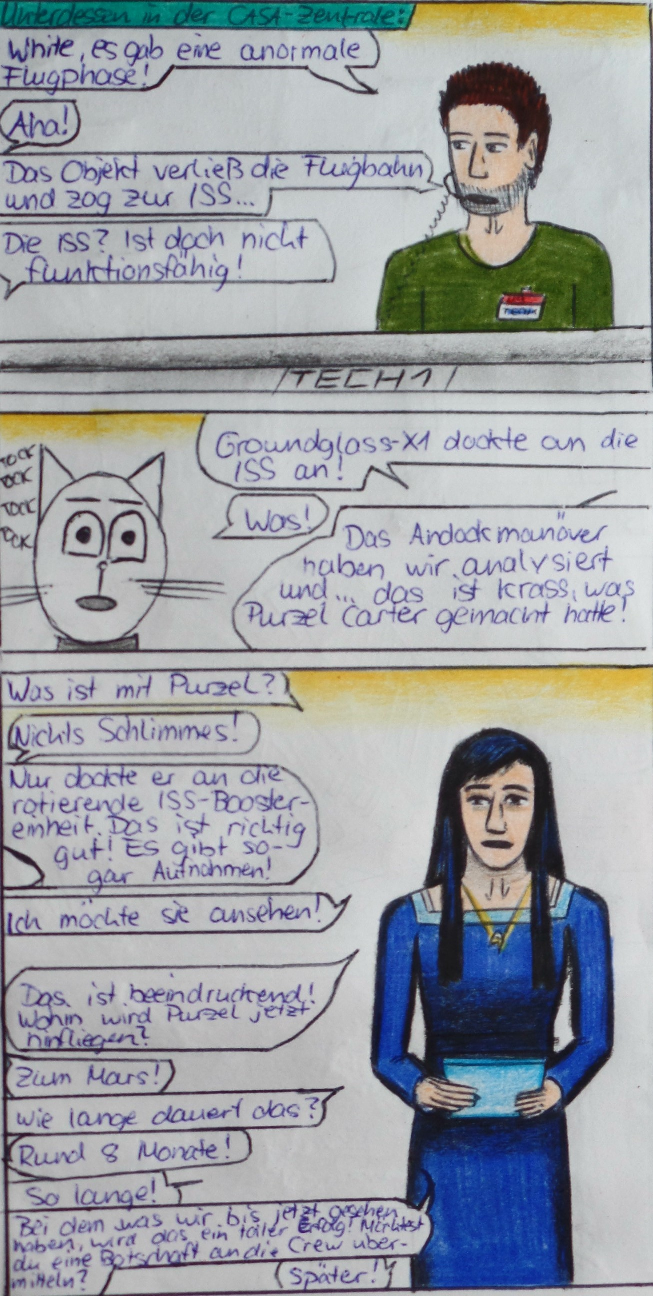 Unterdessen in der CASA-Zentrale:
White, es gab eine anormale
Flugphase!
Aha!
Das Objekt verließ die Flugbahn
und zog zur ISS...
Die ISS? Ist doch nicht
funktionsfähig!
TECH1
TOCK
TOCK
TOCK
TOCK
Groundglass-X1 dockte an die
ISS an!
Was!
Das Andockmanöver
haben wir analysiert
und... das ist krass, was
Purzel Carter gemacht hatte!
Was ist mit Purzel?
Nichts Schlimmes!
Nur dockte er an die
rotierende ISS-Booster-
einheit. Das ist richtig
gut! Es gibt so-
gar Aufnahmen!
Ich möchte sie ansehen!
Das ist beeindruckend!
Wohin wird Purzel jetzt
hinfliegen?
Zum Mars!
Wie lange dauert das?
Rund 8 Monate!
So lange!
Bei dem was wir bis jetzt gesehen
haben, wird das ein toller Erfolg! Möchtest
du eine Botschaft an die Crew über-
mitteln?
Später!